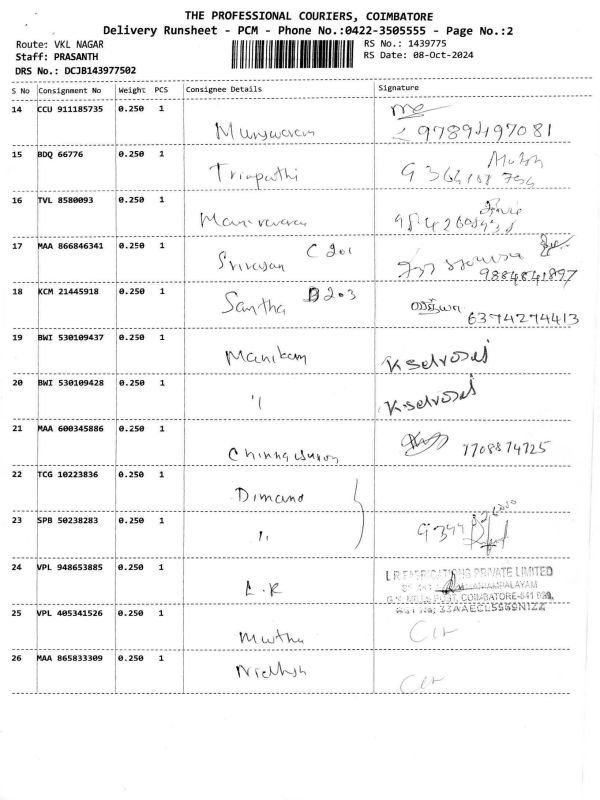 THE PROFESSIONAL COURIERS, COIMBATORE
Delivery Runsheet - PCM - Phone No.:0422-3505555 - Page No.:2
Route: VKL NAGAR
RS No.: 1439775
Staff: PRASANTH
RS Date: 08-Oct-2024
DRS No.: DCJB143977502
S No Consignment No Weight PCS Consignee Details Signature
14 CCU 911185735 0.250 1
9789497081
15 BDQ 66776 0.250 1
Triupathi
16 TVL 8580093 0.250 1
17 MAA 866846341 0.250 1
C 201
Srivasan
9884841897
18 KCM 21445918 0.250 1
Santha B203
6374274413
19 BWI 530109437 0.250 1
Manikam K selvaraj
20 BWI 530109428 0.250 1
" K selvaraj
21 MAA 600345886 0.250 1
7708874725
22 TCG 10223836 0.250 1
Dimand
23 SPB 50238283 0.250 1
"
24 VPL 948653885 0.250 1
L R FABRICATIONS PRIVATE LIMITED
L.R
COIMBATORE-641
25 VPL 405341526 0.250 1
GST No: 33AAECL5569N1ZZ
Muthu
26 MAA 865833309 0.250 1